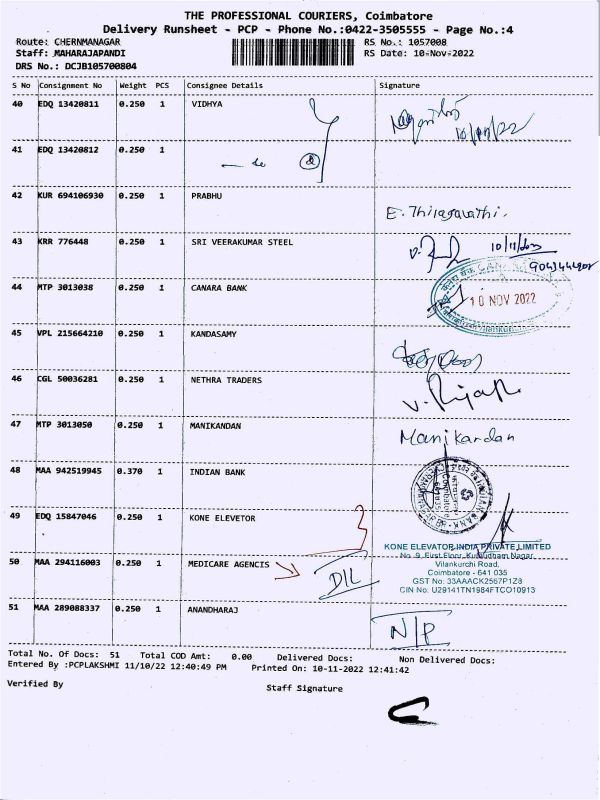 THE PROFESSIONAL COURIERS, Coimbatore
Delivery Runsheet - PCP - Phone No.:0422-3505555 - Page No.:4
Route: CHERNMANAGAR RS No.: 1057008
Staff: MAHARAJAPANDI RS Date: 10-Nov-2022
DRS No.: DCJB105700804
S No Consignment No Weight PCS Consignee Details Signature
40 EDQ 13420811 0.250 1 VIDHYA
10/11/22
41 EDQ 13420812 0.250 1
42 KUR 694106930 0.250 1 PRABHU
E. Thilagavathi.
43 KRR 776448 0.250 1 SRI VEERAKUMAR STEEL
44 MTP 3013038 0.250 1 CANARA BANK
10 NOV 2022
45 VPL 215664210 0.250 1 KANDASAMY
46 CGL 50036281 0.250 1 NETHRA TRADERS
47 MTP 3013050 0.250 1 MANIKANDAN
Manikandan
48 MAA 942519945 0.370 1 INDIAN BANK
49 EDQ 15847046 0.250 1 KONE ELEVETOR
KONE ELEVATOR INDIA PRIVATE LIMITED
No. 9, First Floor, Kurudham Nagar,
Vilankurchi Road,
Coimbatore - 641 035
GST No: 33AAACK2567P1Z8
CIN No: U29141TN1984FTCO10913
50 MAA 294116003 0.250 1 MEDICARE AGENCIS
D/L
51 MAA 289088337 0.250 1 ANANDHARAJ
N/P
Total No. Of Docs: 51 Total COD Amt: 0.00 Delivered Docs: Non Delivered Docs:
Entered By :PCPLAKSHMI 11/10/22 12:40:49 PM Printed On: 10-11-2022 12:41:42
Verified By Staff Signature